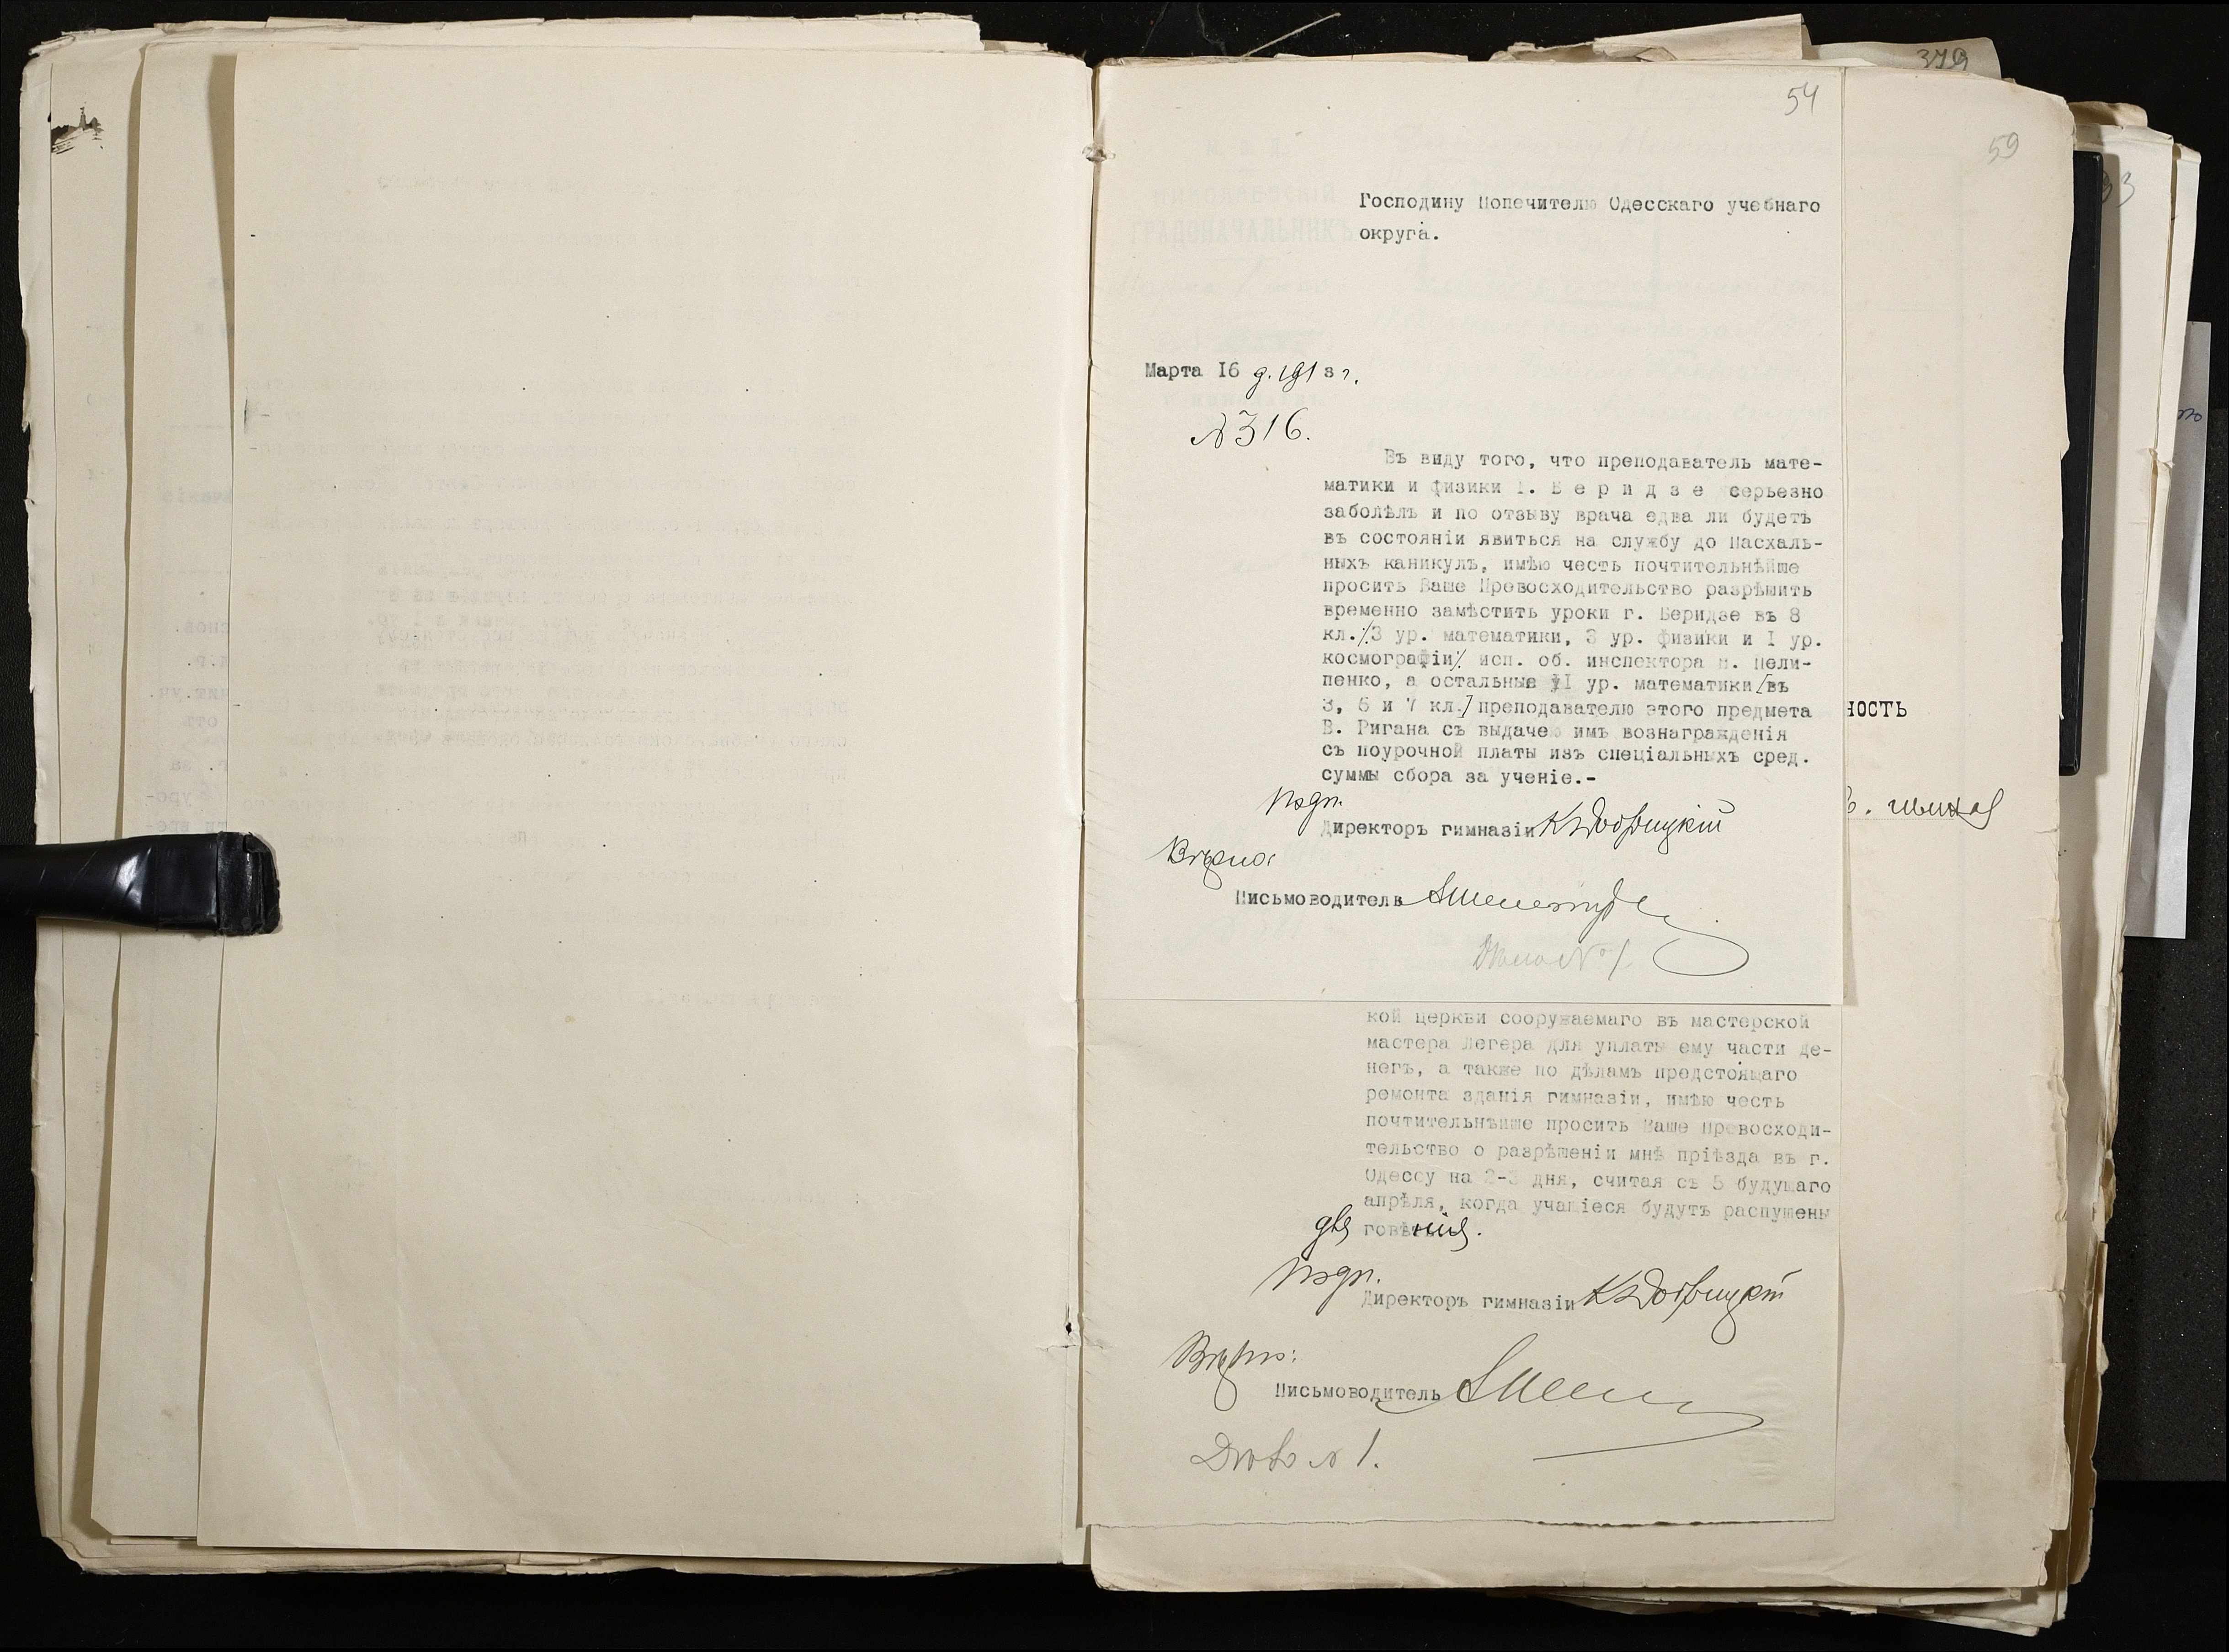 379
54
59
33
Господину Попечителю Одесскаго учебнаго
округа.
Марта I6 д. 1913 г.
№ 316.
Въ виду того, что преподаватель мате-
матики и физики Г. Б е р и д з е серьезно
заболѣлъ и по отзыву врача едва ли будетъ
въ состояніи явиться на службу до Пасхаль-
ныхъ каникулъ, имѣю честь почтительнѣйше
просить Ваше Превосходительство разрѣшить
временно замѣстить уроки г. Беридзе въ 8
кл./3 ур. математики, 3 ур. физики и I ур.
космографіи/ исп. об. инспектора Н. Пели-
пенко, а остальные II ур. математики [въ
3, 6 и 7 кл.] преподавателю этого предмета
В. Ригана съ выдачею имъ вознагражденія
съ поурочной платы изъ спеціальныхъ сред.
суммы сбора за ученіе.-
подп.
Директоръ гимназіи
Вѣрно
Письмоводитель
Дѣло № 1
ность
кой церкви сооружаемаго въ мастерской
мастера Легера для уплаты ему части де-
негъ, а также по дѣламъ предстоящаго
ремонта зданія гимназіи, имѣю честь
почтительнѣйше просить Ваше Превосходи-
тельство о разрѣшеніи мнѣ пріѣзда въ г.
Одессу на 2-3 дня, считая съ 5 будущаго
апрѣля, когда учащіеся будутъ распущены
для говѣнія.
подп.
Директоръ гимназіи
Вѣрно:
Письмоводитель
Дѣло № 1.